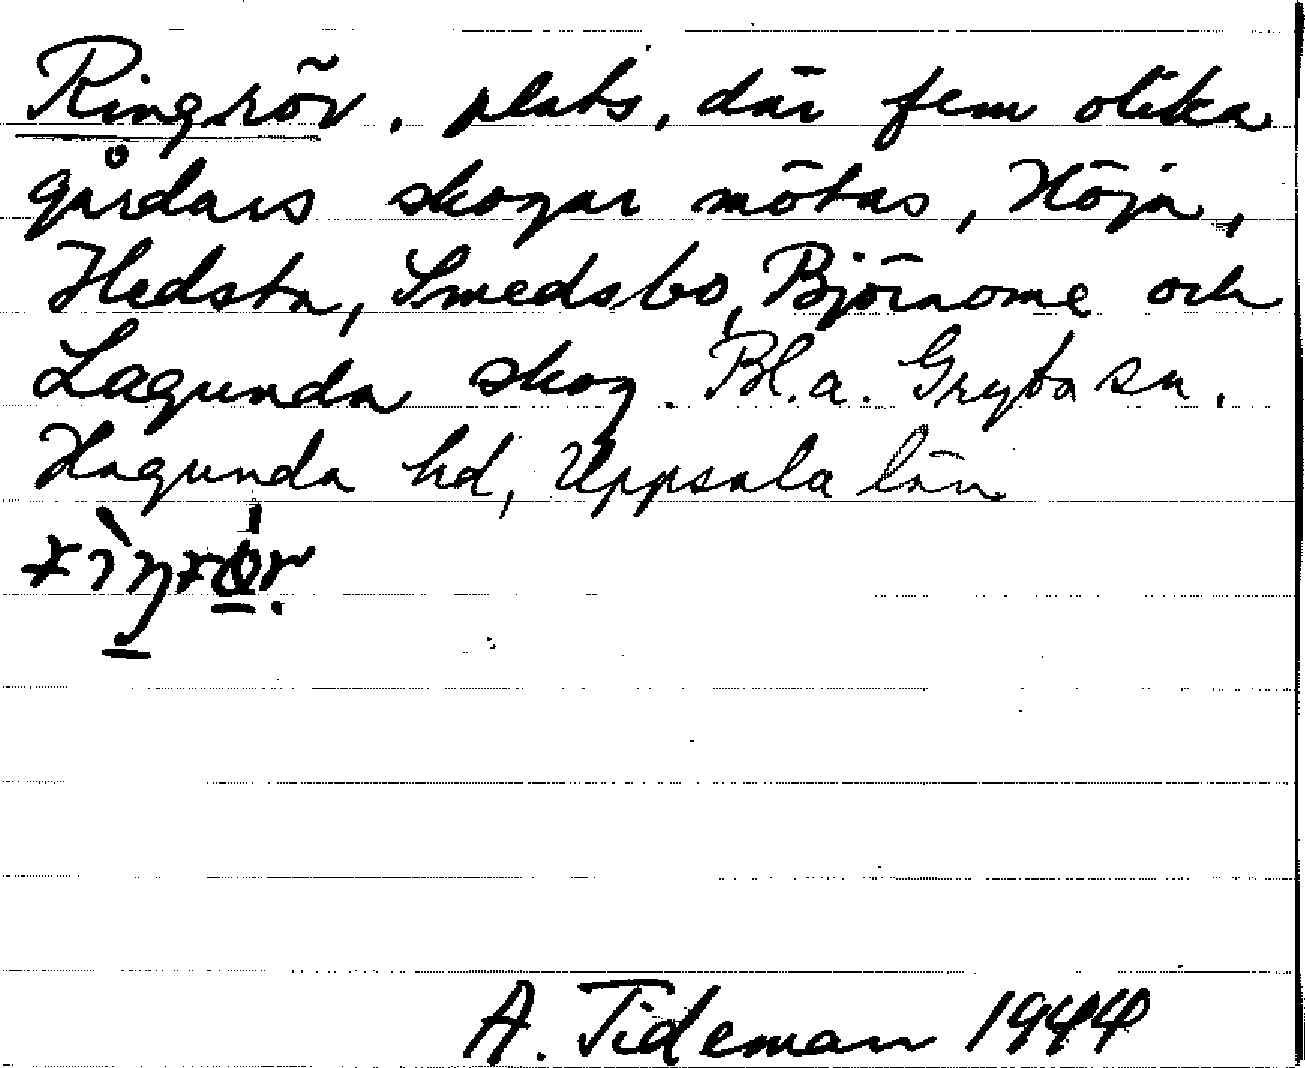 Ringsrör, plats, där fem olika
gårdars skogar mötas, Höja,
Hedsta, Smedsbo, Björnome och
Lagunda skog. Bl.a. Gryta sn.
Hagunda hd, Uppsala län
A. Tideman 1944